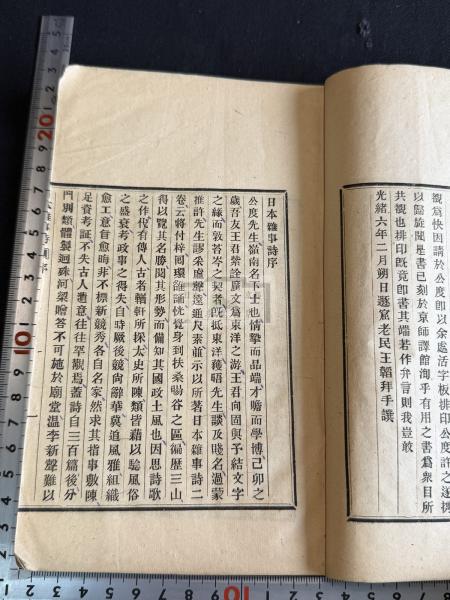 觀爲快因請於公度即以余處活字板排印公度許之遂擇
以歸旋聞是書已刻於京師譯館洵乎有用之書爲衆目所
共覩也排印既竟即書其端若作弁言則我豈敢
光緒六年二月朔日遯窟老民王韜拜手譔
日本雜事詩序
公度先生嶺南名下士也情摯而品端才贍而學博己卯之
歲吾友王君紫詮廣文爲東洋之游王君向固與予結文字
之緣而敦苔岑之契者既抵東洋獲晤先生談及賤名過蒙
推許先生謬采虛聲遠通尺素並示以所著日本雜事詩二
卷云將付梓回環雒誦恍覺身到扶桑暘谷之區徧歷三山
得以覽其名勝閱其形勢而備知其國政土風也因思詩歌
之作代有傳人古者輶軒所採太史所陳類皆藉以驗風俗
之盛衰考政事之得失自時厥後競尙辭華莫追風雅組織
愈工意旨愈晦時非不標新競秀各自名家然求其指事敷陳
足資考証不失古人遺意往往罕觀焉蓋詩自三百篇後分
門別類體製迥殊河梁贈答不可施於廟堂溫李新聲難以